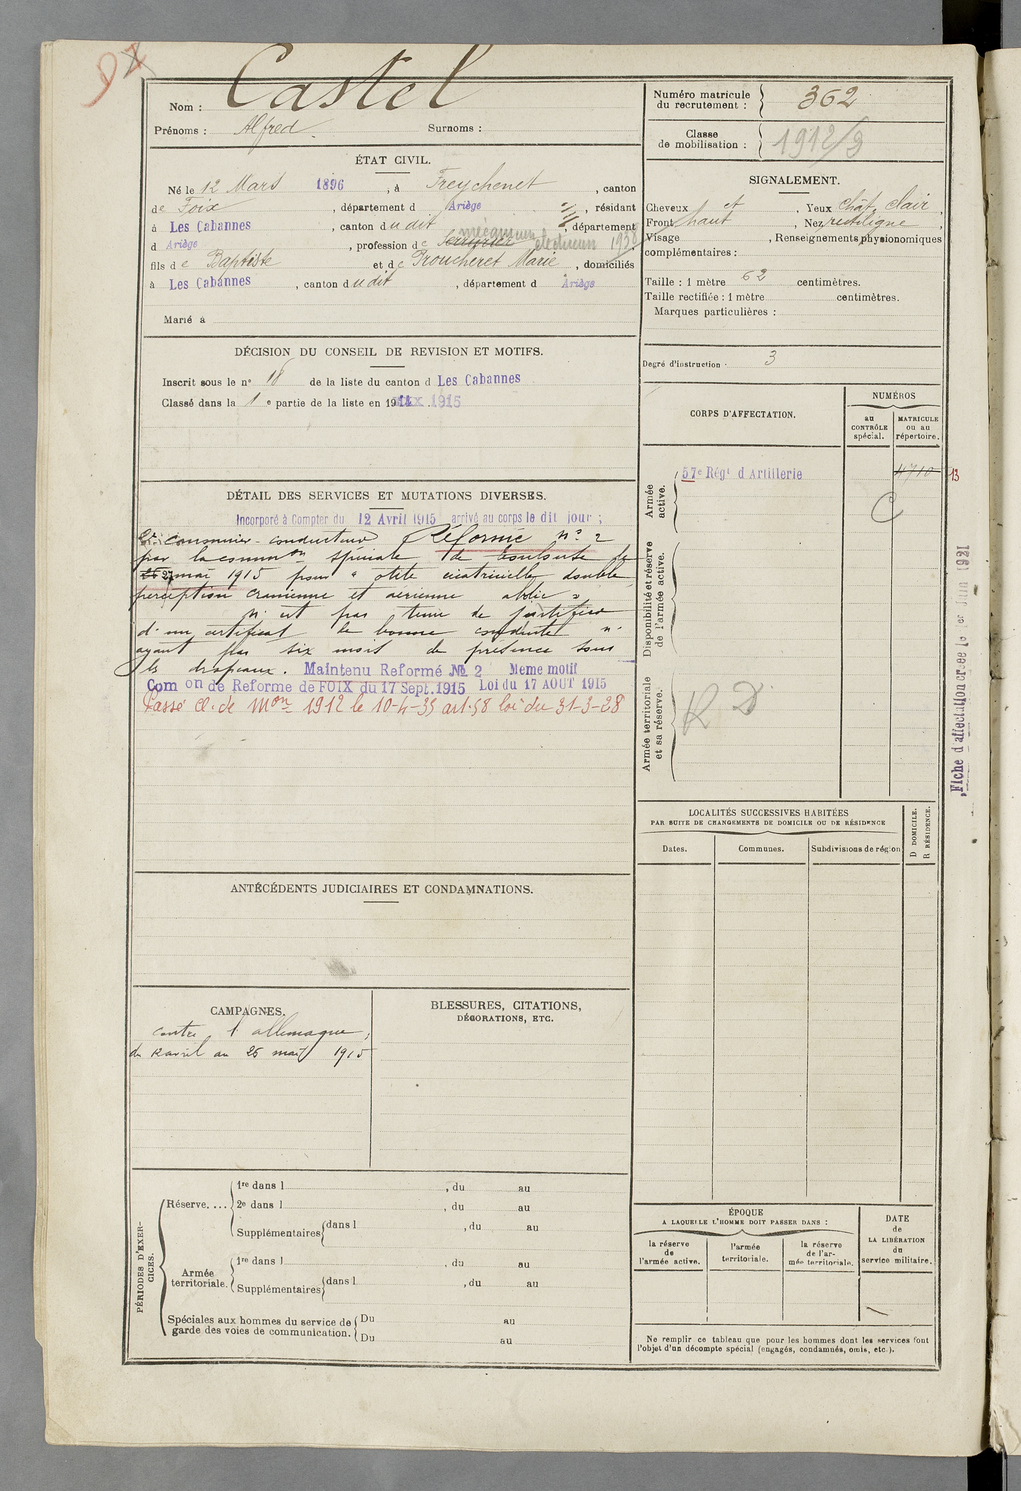 Nom : Castel
Prénoms : Alfred Surnoms :
ÉTAT CIVIL.
Né le 12 Mars 1896, à Freychenet, canton
de Foix, département d Ariège, résidant
à Les Cabannes, canton dudit, département
mécanicien
d Ariège, profession de Serrurier électricien 1938
fils de Baptiste et de Proucheret Marie, domiciliés
à Les Cabannes, canton dudit, département d Ariège
Marié à
DÉCISION DU CONSEIL DE REVISION ET MOTIFS.
Inscrit sous le n° 18 de la liste du canton d Les Cabannes
Classé dans la 1e partie de la liste en 1915
DÉTAIL DES SERVICES ET MUTATIONS DIVERSES.
Incorporé à Compter du 12 Avril 1915 arrivé au corps le dit jour ;
2e canonnier conducteur Réformé n° 2
par la common spéciale de Toulouse le
25 27 mai 1915 pour " otite cicatricielle double
perception cranienne et aérienne abolie "
N'est pas tenu de justifier
d'un certificat de bonne conduite n'
ayant pas six mois de présence sous
les drapeaux. Maintenu Reformé № 2 Meme motif
Com on de Reforme de FOIX du 17 Sept. 1915 Loi du 17 AOUT 1915
Passé cl. de Mon 1912 le 10-4-35 art. 58 loi du 31-3-28
ANTÉCÉDENTS JUDICIAIRES ET CONDAMNATIONS.
CAMPAGNES.
contre l'allemagne ;
du 12 avril au 25 mai 1915
BLESSURES, CITATIONS,
DÉCORATIONS, ETC.
PÉRIODES D'EXER-
CICES.
Réserve....
1re dans l , du au
2e dans l , du au
Supplémentaires dans l , du au
Armée
territoriale.
1re dans l , du au
Supplémentaires dans l , du au
Spéciales aux hommes du service de
garde des voies de communication.
Du au
Du au
Numéro matricule
du recrutement : 362
Classe
de mobilisation : 1912/3
SIGNALEMENT.
Cheveux et, Yeux chât. clair,
Front haut, Nez rectiligne,
Visage , Renseignements physionomiques
complémentaires :
Taille : 1 mètre 62 centimètres.
Taille rectifiée : 1 mètre centimètres.
Marques particulières :
Degré d'instruction : 3
CORPS D'AFFECTATION.
NUMÉROS
au
CONTRÔLE
spécial.
MATRICULE
ou au
répertoire.
Armée
active.
57e Régt d Artillerie 4710 13
C
Disponibilité et réserve
de l'armée active.
Armée territoriale
et sa réserve.
R D
Fiche d'affectation créée le 1er Juin 1921
LOCALITÉS SUCCESSIVES HABITÉES
PAR SUITE DE CHANGEMENTS DE DOMICILE OU DE RÉSIDENCE
D DOMICILE.
R RÉSIDENCE.
Dates. Communes. Subdivisions de région
ÉPOQUE
A LAQUELLE L'HOMME DOIT PASSER DANS :
la réserve
de
l'armée active.
l'armée
territoriale.
la réserve
de l'ar-
mée territoriale.
DATE
de
LA LIBÉRATION
du
service militaire.
Ne remplir ce tableau que pour les hommes dont les services font
l'objet d'un décompte spécial (engagés, condamnés, omis, etc.).